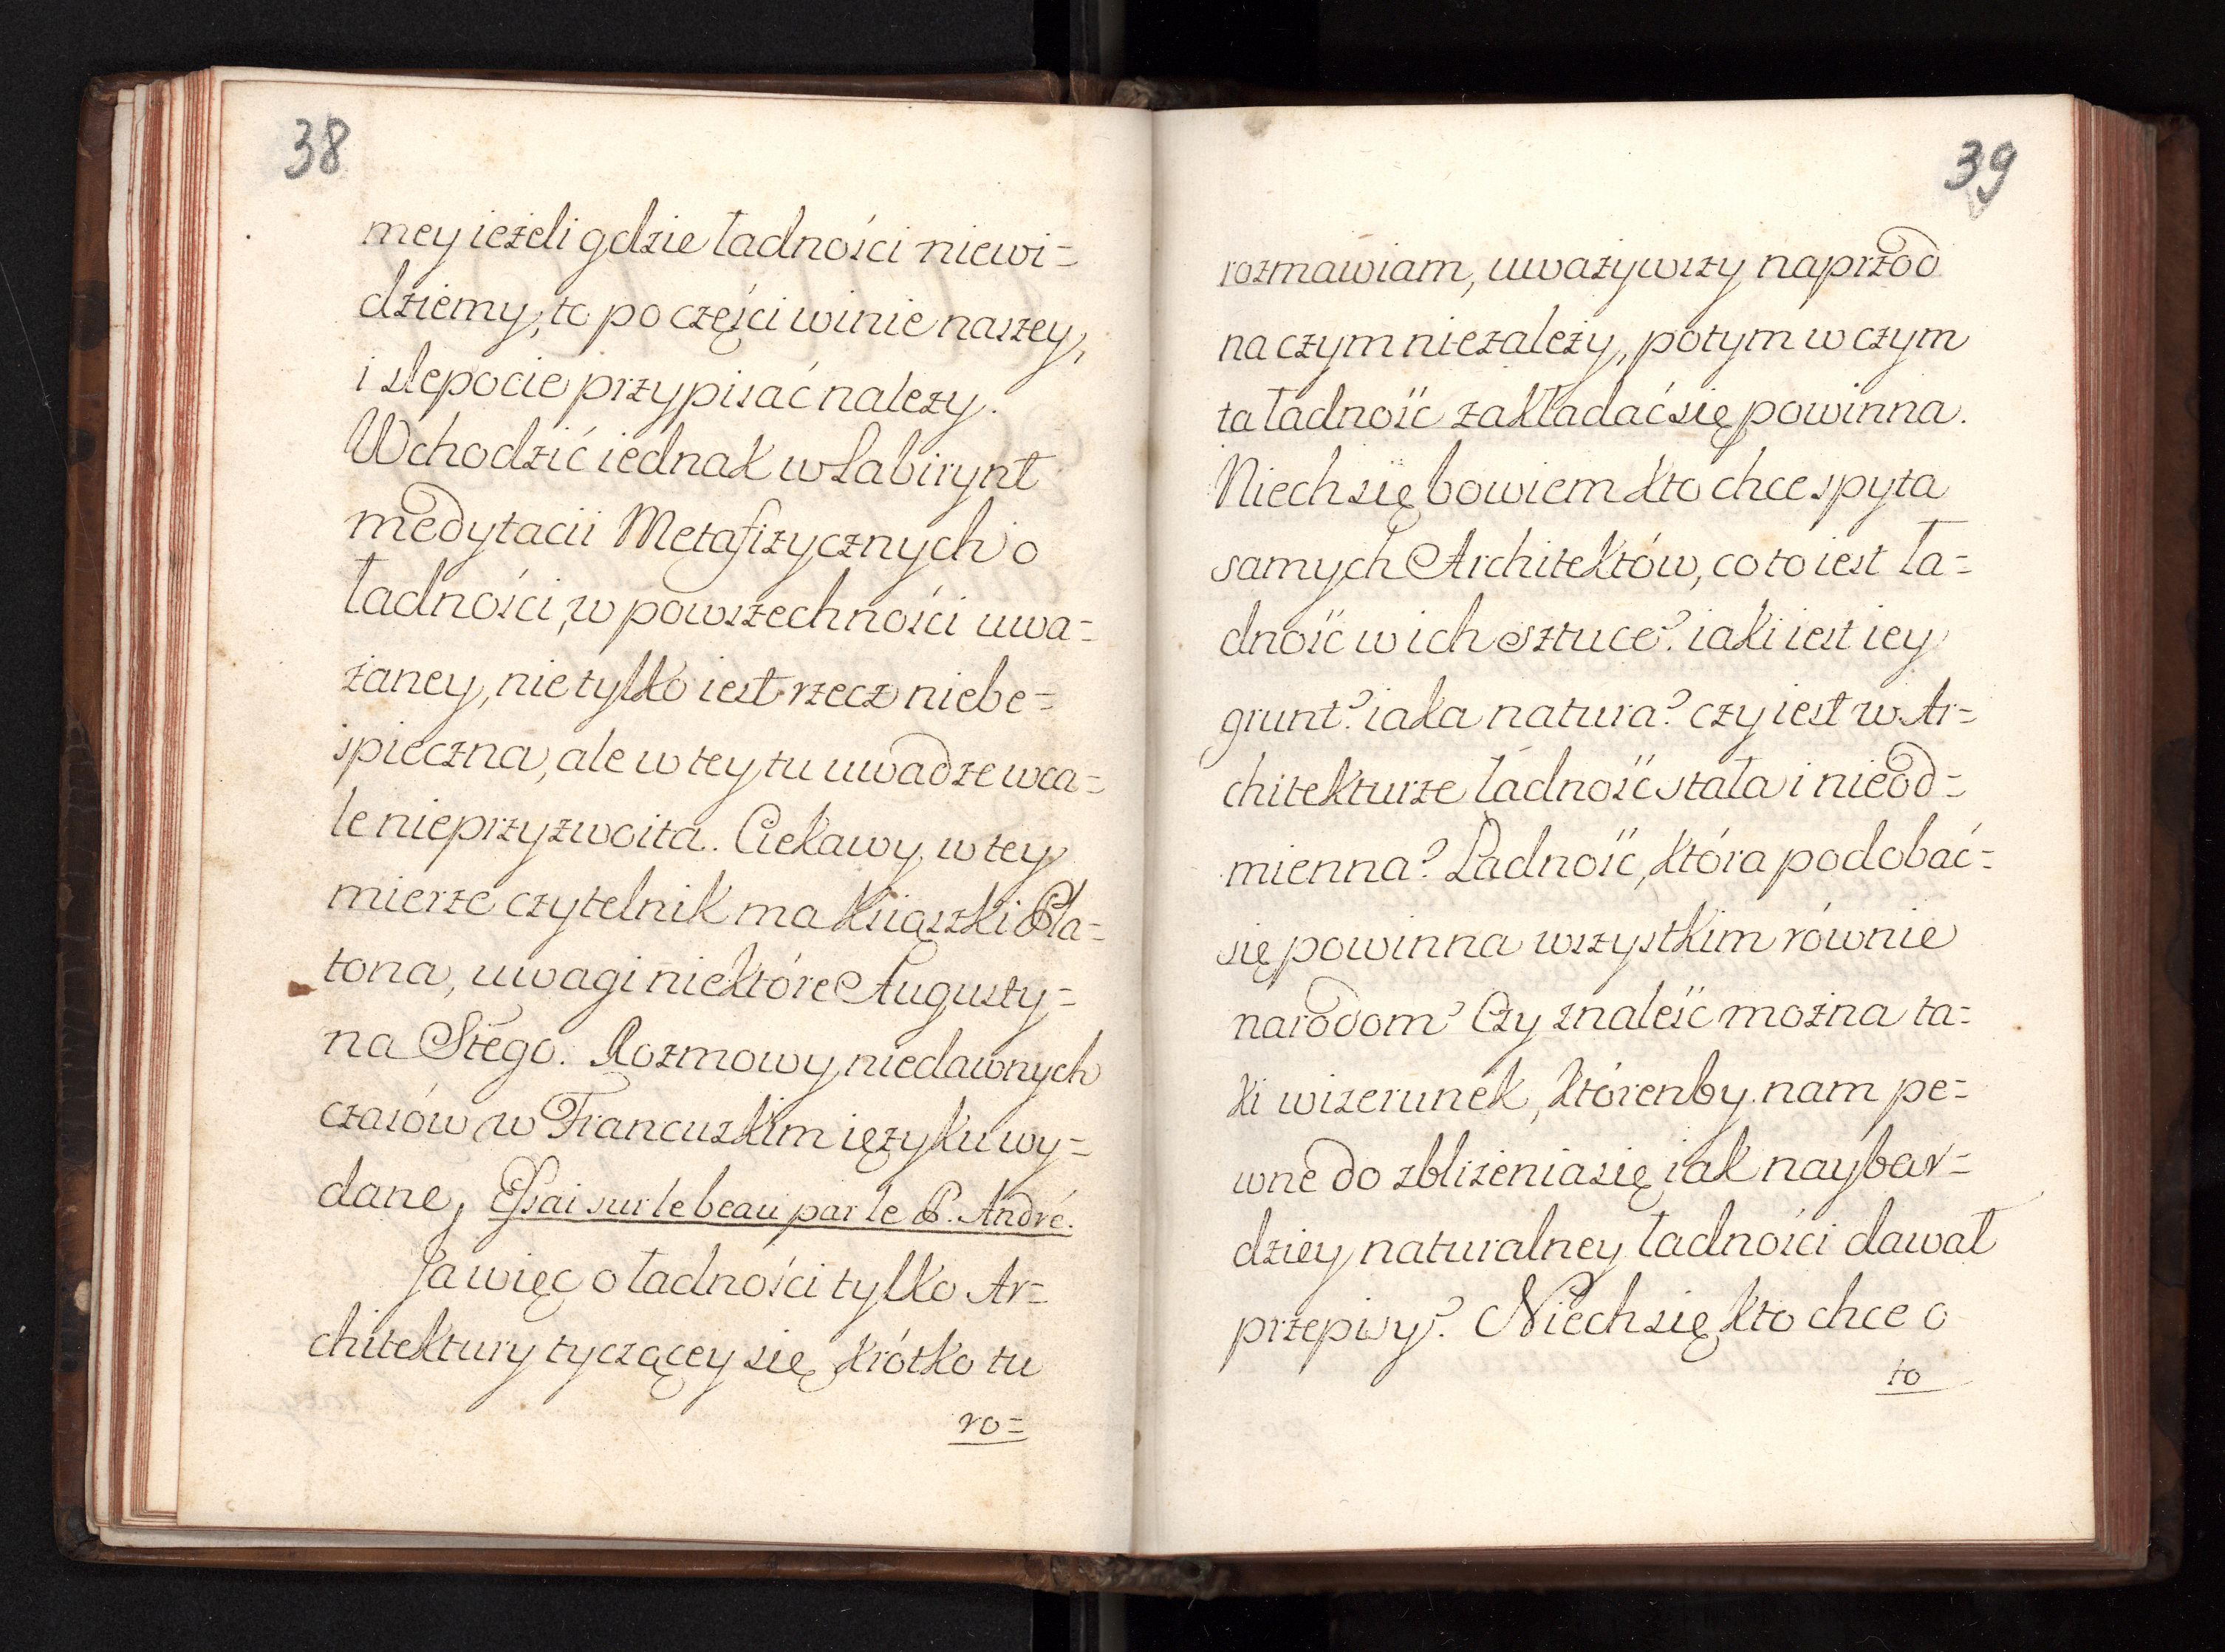 38
mey ieżeli gdzie ładności niewi=
dziemy, to po części winie naszey,
i slepocie przypisać nalezy.
Wchodzić iednak w Labirynt
medytacii Metafizycznych o
ładności, w powszechności uwa=
żaney, nie tylko iest rzecz niebe=
spieczna, ale w tey tu uwadze wca=
le nieprzyzwoita. Ciekawy w tey
mierze czytelnik ma Książki Pla=
tona, uwagi niektóre Augusty=
na Stego. Rozmowy niedawnych
czasów w Francuzkim ięzyku wy=
dane, Essai sur le beau par le P. André.
Ja więc o ładności tylko Ar=
chitektury tyczącey się krótko tu
ro=
39
rozmawiam, uważywszy naprzod
na czym niezależy, potym w czym
ta ładność zakładać się powinna.
Niech się bowiem kto chce spyta
samych Architektów, co to iest ła=
dność w ich sztuce? iaki iest iey
grunt? iaka natura? czy iest w Ar=
chitekturze ładność stała i nieod=
mienna? Ładność, która podobać=
się powinna wszystkim równie
narodom? Czy znaleść można ta=
ki wizerunek, którenby nam pe=
wne do zbliżenia się iak naybar=
dziey naturalney ładności dawał
przepisy? Niech się kto chce o
to